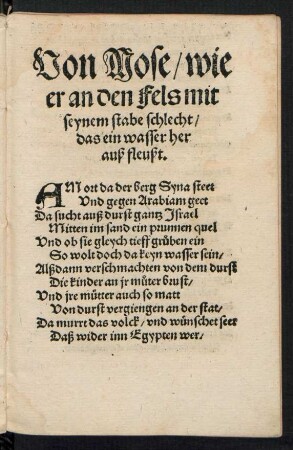 Von Mose/ wie
er an den Fels mit
seynem stabe schlecht/
das ein wasser her
auß fleußt.
AM ort da der berg Syna steet
Vnd gegen Arabiam geet
Da sucht auß durst gantz Israel
Mitten im sand ein prunnen quel
Vnd ob sie gleych tieff grüben ein
So wolt doch da keyn wasser sein/
Alßdann verschmachten von dem durst
Die kinder an jr müter brust/
Vnd jre mütter auch so matt
Von durst vergiengen an der stat/
Da murrt das volck/ vnd wünschet seer
Daß wider inn Egypten wer/